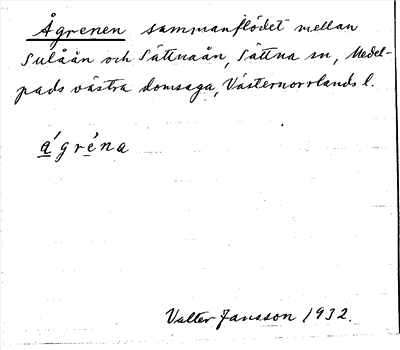 Ågrenen sammanflödet mellan
Sulåån och Sättnaån, Sättna sn, Medel-
pads västra domsaga, Västernorrlands l.
a᷄́gré̱na
Valter Jansson 1932.